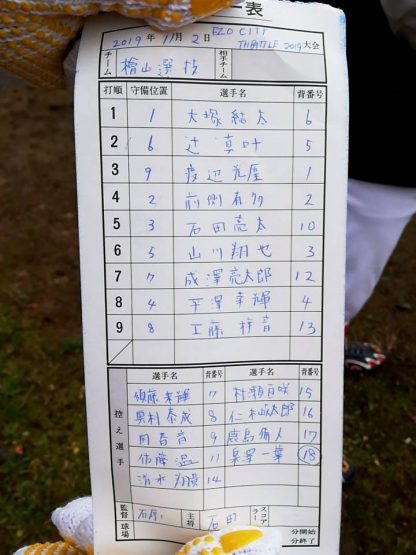 表
2019年11月2日 EZO CITY THBATTLE 2019 大会
チーム 檜山選抜 相手チーム
打順 守備位置 選手名 背番号
1 1 大塚結太 6
2 6 辻真叶 5
3 9 渡辺 1
4 2 前側 2
5 3 石田亮太 10
6 5 山川翔也 3
7 7 成澤亮太郎 12
8 4 平澤幸輝 4
9 8 工藤 13
選手名 背番号 選手名 背番号
控え選手
須藤来輝 7 村瀬百咲 15
奥村泰成 8 仁木太郎 16
9 鹿島 17
佐藤温 11 一華 18
清水 14
監督 石原 主将 石田 スコアラー
球場 分開始
分終了